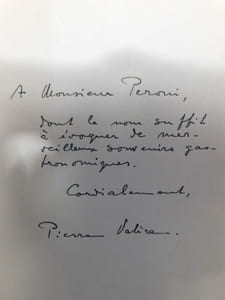 A Monsieur Peroni,
dont le nom suffit
à évoquer de mer-
veilleux souvenirs gas-
tronomiques.
Cordialement,
Pierre